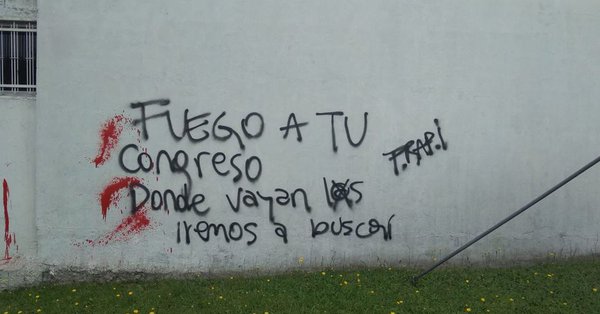 FUEGO A TU
Congreso
Donde vayan los
iremos a buscar
F.R.A.P.I